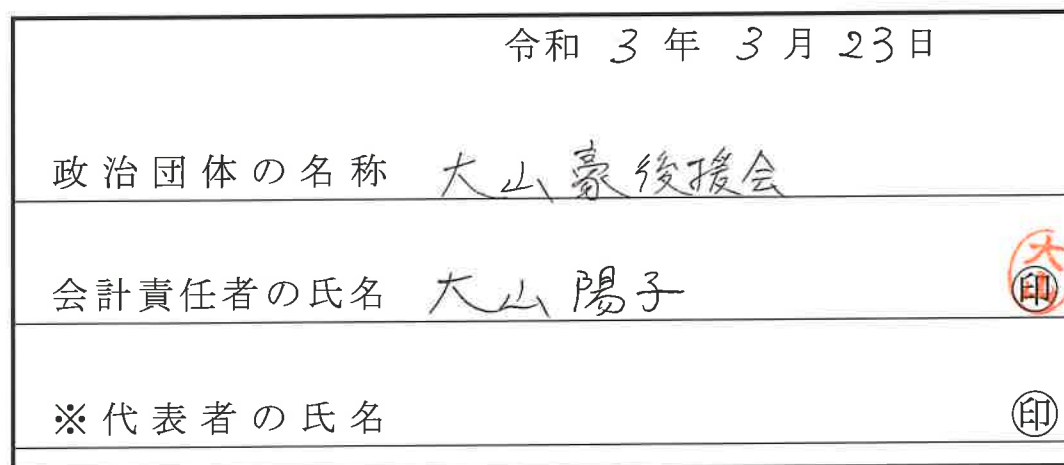 令和 3 年 3 月 23 日
政治団体の名称 大山豪後援会
会計責任者の氏名 大山陽子 印
※代表者の氏名 印